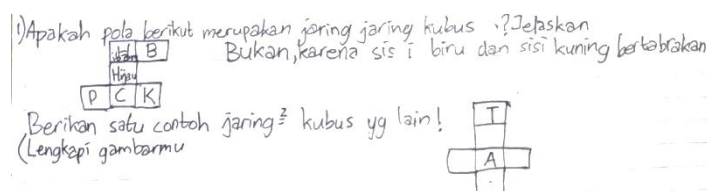 1) Apakah pola berikut merupakan jaring jaring kubus .? Jelaskan
B
Bukan, karena sis i biru dan sisi kuning bertabrakan
Hijau
P C K
Berikan satu contoh jaring² kubus yg lain!
(Lengkapi gambarmu
T
A